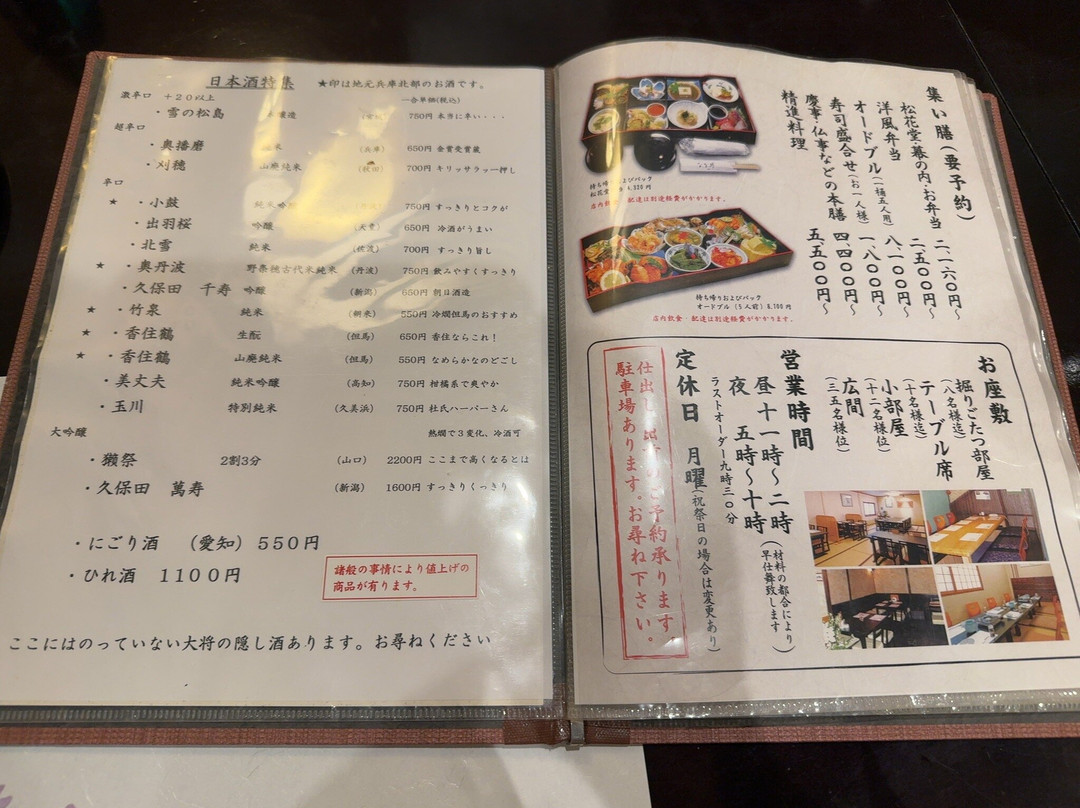 日本酒特集 ★印は地元兵庫北部のお酒です。
激辛口 +20以上 一合単価(税込)
・雪の松島 醸造 750円 本当に辛い・・・
超辛口
・奥播磨 米 (兵庫) 650円 金賞受賞蔵
・刈穂 山廃純米 (秋田) 700円 キリッサラッ一押し
辛口
★ ・小鼓 純米吟 750円 すっきりとコクが
・出羽桜 吟醸 (天童) 650円 冷酒がうまい
・北雪 純米 (佐渡) 700円 すっきり旨し
★ ・奥丹波 野条穂古代米純米 (丹波) 750円 飲みやすくすっきり
・久保田 千寿 吟醸 (新潟) 650円 朝日酒造
★ ・竹泉 純米 (朝来) 550円 冷燗但馬のおすすめ
★ ・香住鶴 生酛 (但馬) 650円 香住ならこれ!
★ ・香住鶴 山廃純米 (但馬) 550円 なめらかなのどごし
・美丈夫 純米吟醸 (高知) 750円 柑橘系で爽やか
・玉川 特別純米 (久美浜) 750円 杜氏ハーパーさん
大吟醸 熱燗で3変化、冷酒可
・獺祭 2割3分 (山口) 2200円 ここまで高くなるとは
・久保田 萬寿 (新潟) 1600円 すっきりくっきり
・にごり酒 (愛知) 550円
・ひれ酒 1100円
諸般の事情により値上げの
商品が有ります。
ここにはのっていない大将の隠し酒あります。お尋ねください
集い膳(要予約)
松花堂・幕の内・お弁当 二、一六〇円~
洋風弁当 二、五〇〇円~
オードブル(一極五人用) 八、一〇〇円~
寿司盛合せ(お一人様) 一、八〇〇円~
慶事・仏事などの本膳 四、四〇〇円~
精進料理 五、五〇〇円~
持ち帰りおよびパック
松花堂 4,320円
店内飲食・配達は別途経費がかかります。
持ち帰りおよびパック
オードブル(5人前)8,100円
店内飲食・配達は別途経費がかかります。
お座敷
掘りごたつ部屋
(八名様迄)
テーブル席
(十名様迄)
小部屋
(十二名様位)
広間
(三五名様位)
営業時間
昼 十一時~二時
夜 五時~十時
(材料の都合により
早仕舞致します)
ラストオーダー九時三〇分
定休日 月曜(祝祭日の場合は変更あり)
仕出し、のご予約承ります
駐車場あります。お尋ね下さい。